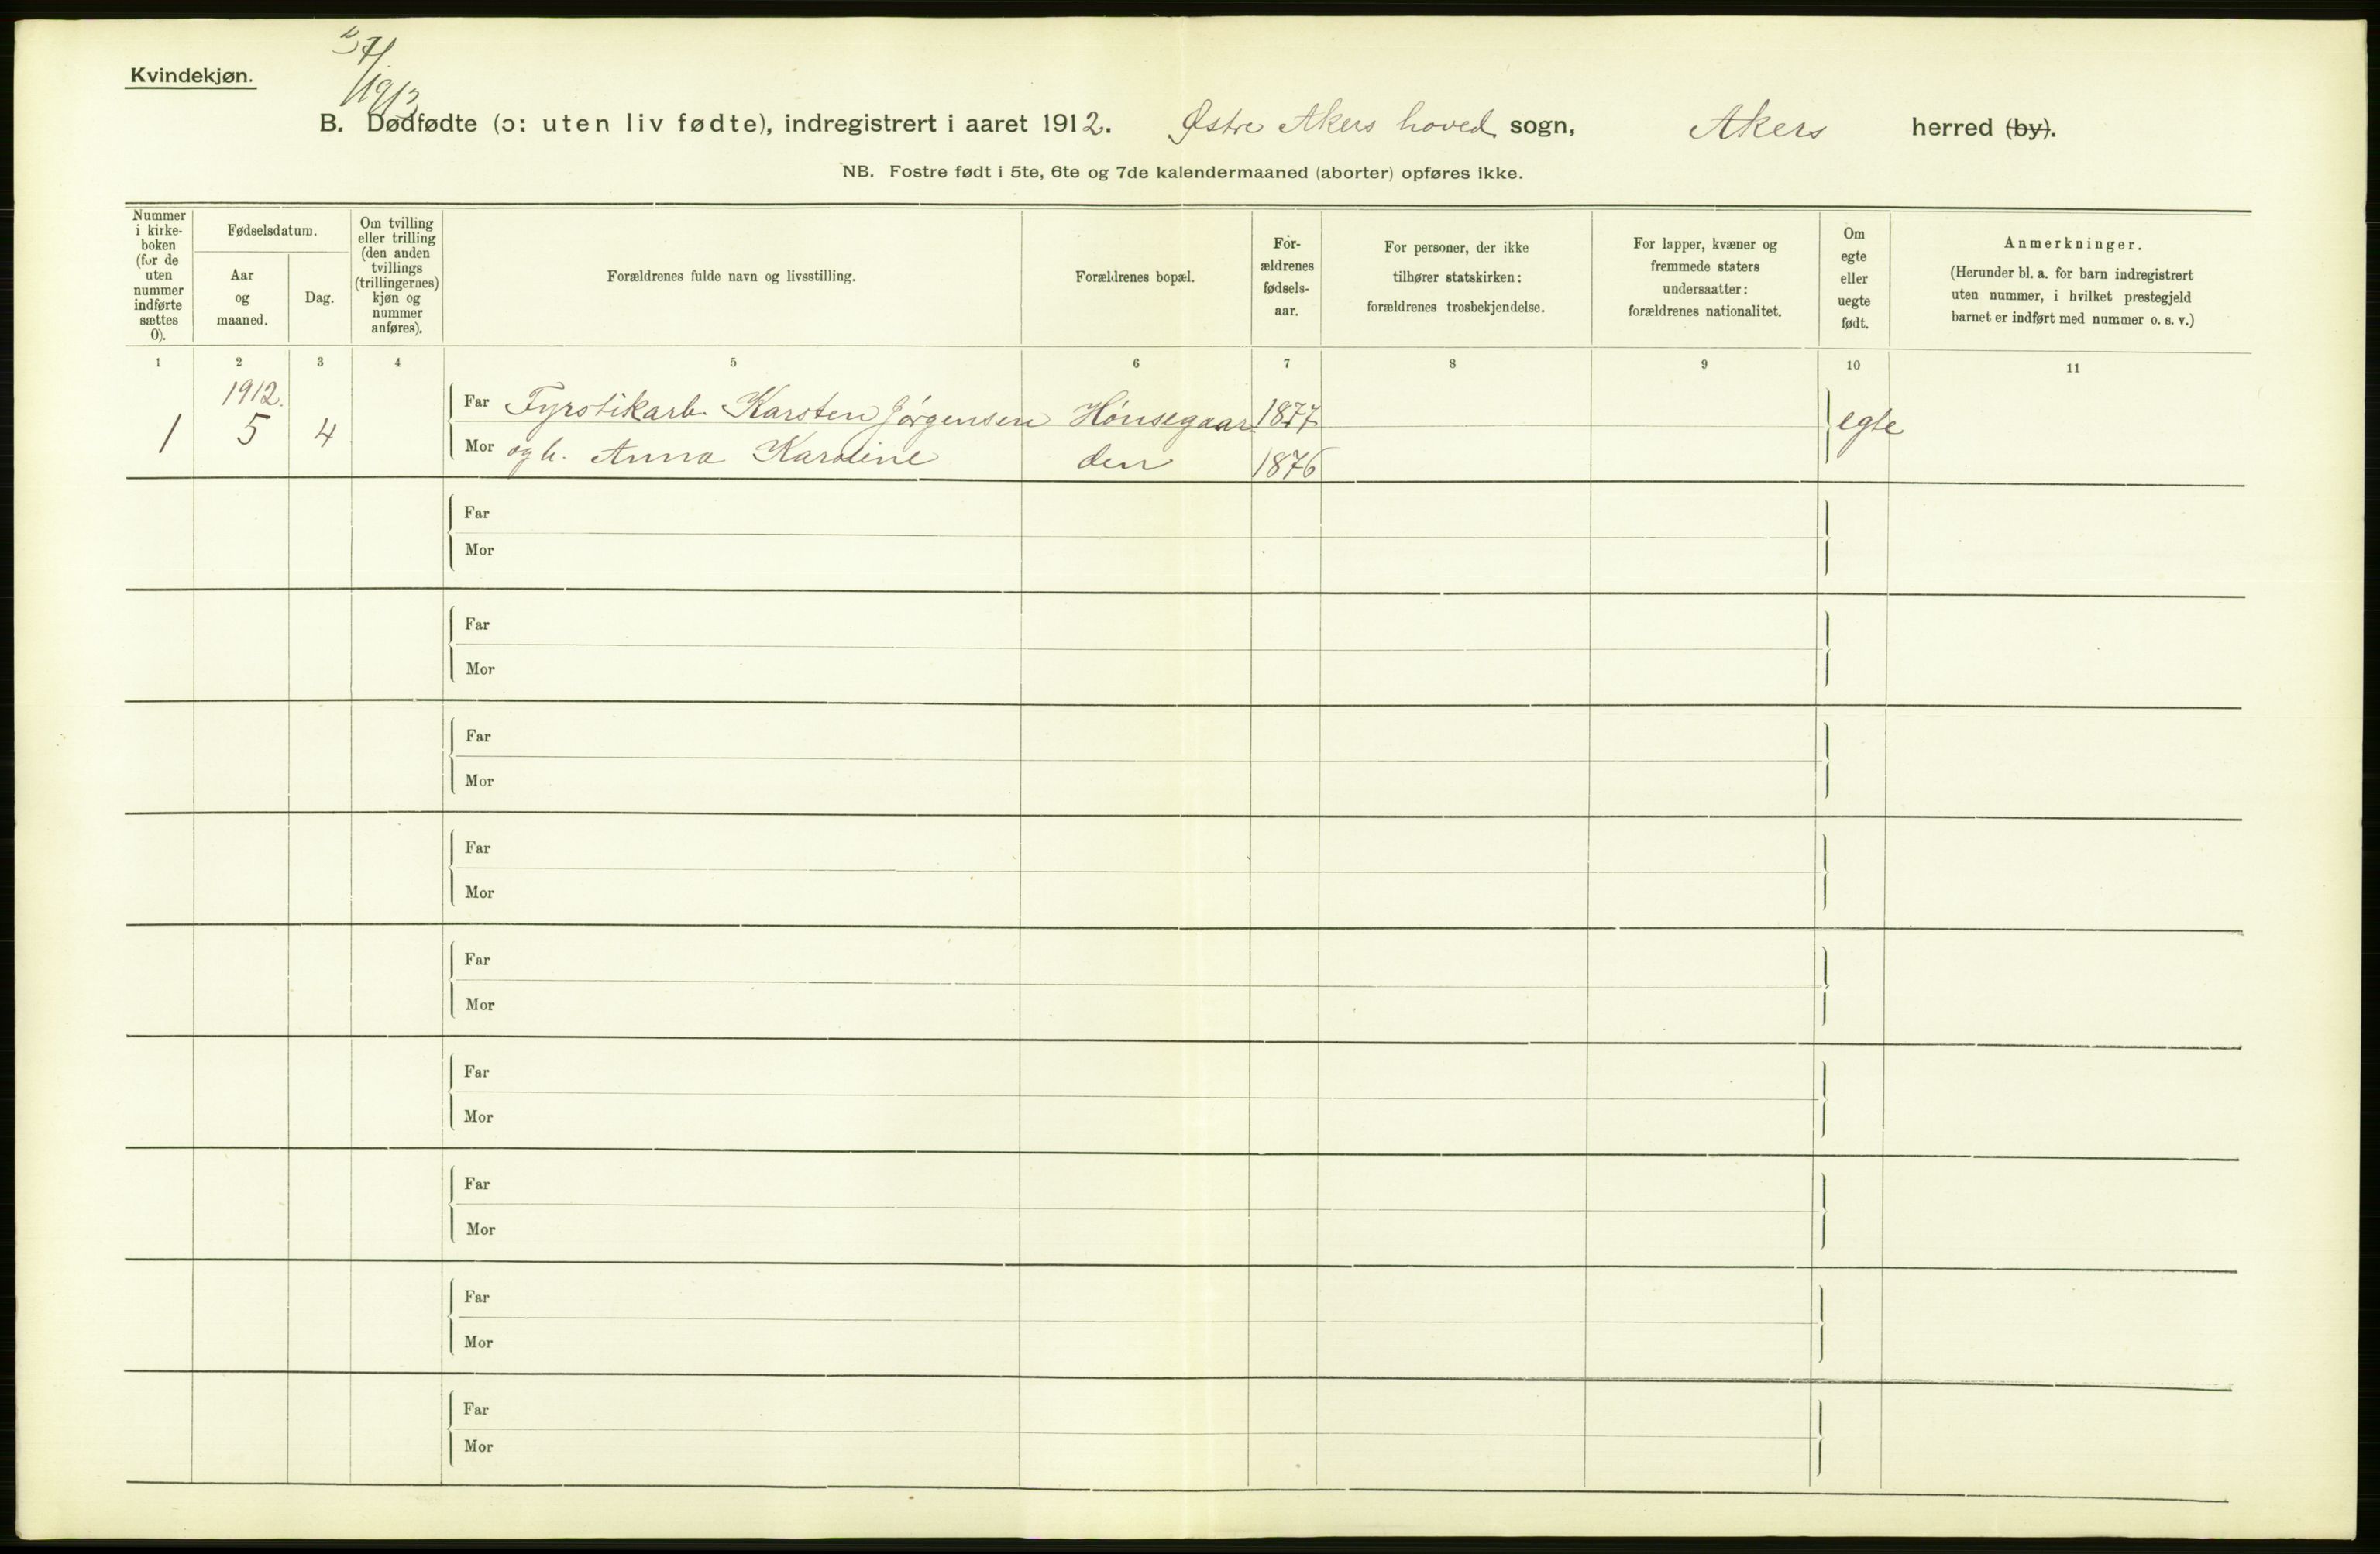 Kvindekjøn.
B. Dødfødte (ɔ: uten liv fødte), indregistrert i aaret 1912. Østre Akers hoved sogn, Akers herred (by).
NB. Fostre født i 5te, 6te og 7de kalendermaaned (aborter) opføres ikke.
Nummer
i kirke-
boken
(for de
uten
nummer
indførte
sættes
0).
Fødselsdatum.
Aar
og
maaned.
Dag.
Om tvilling
eller trilling
(den anden
tvillings
(trillingernes)
kjøn og
nummer
anføres).
Forældrenes fulde navn og livsstilling.
Forældrenes bopæl.
For-
ældrenes
fødsels-
aar.
For personer, der ikke
tilhører statskirken:
forældrenes trosbekjendelse.
For lapper, kvæner og
fremmede staters
undersaatter:
forældrenes nationalitet.
Om
egte
eller
uegte
født.
Anmerkninger.
(Herunder bl. a. for barn indregistrert
uten nummer, i hvilket prestegjeld
barnet er indført med nummer o. s. v.)
1 2 3 4 5 6 7 8 9 10 11
1912.
1 5 4
Far Fyrstikarb. Karsten Jørgensen Hønsegaar- 1877 egte
Mor og h. Anna Karoline den 1876
Far
Mor
Far
Mor
Far
Mor
Far
Mor
Far
Mor
Far
Mor
Far
Mor
Far
Mor
Far
Mor